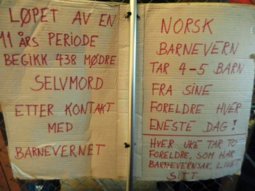 LØPET AV EN
11 ÅRS PERIODE
BEGIKK 438 MØDRE
SELVMORD
ETTER KONTAKT
MED
BARNEVERNET
NORSK
BARNEVERN
TAR 4-5 BARN
FRA SINE
FORELDRE HVER
ENESTE DAG!
HVER UKE TAR TO
FORELDRE, SOM HAR
BARNEVERNSAK, LIVET
SITT